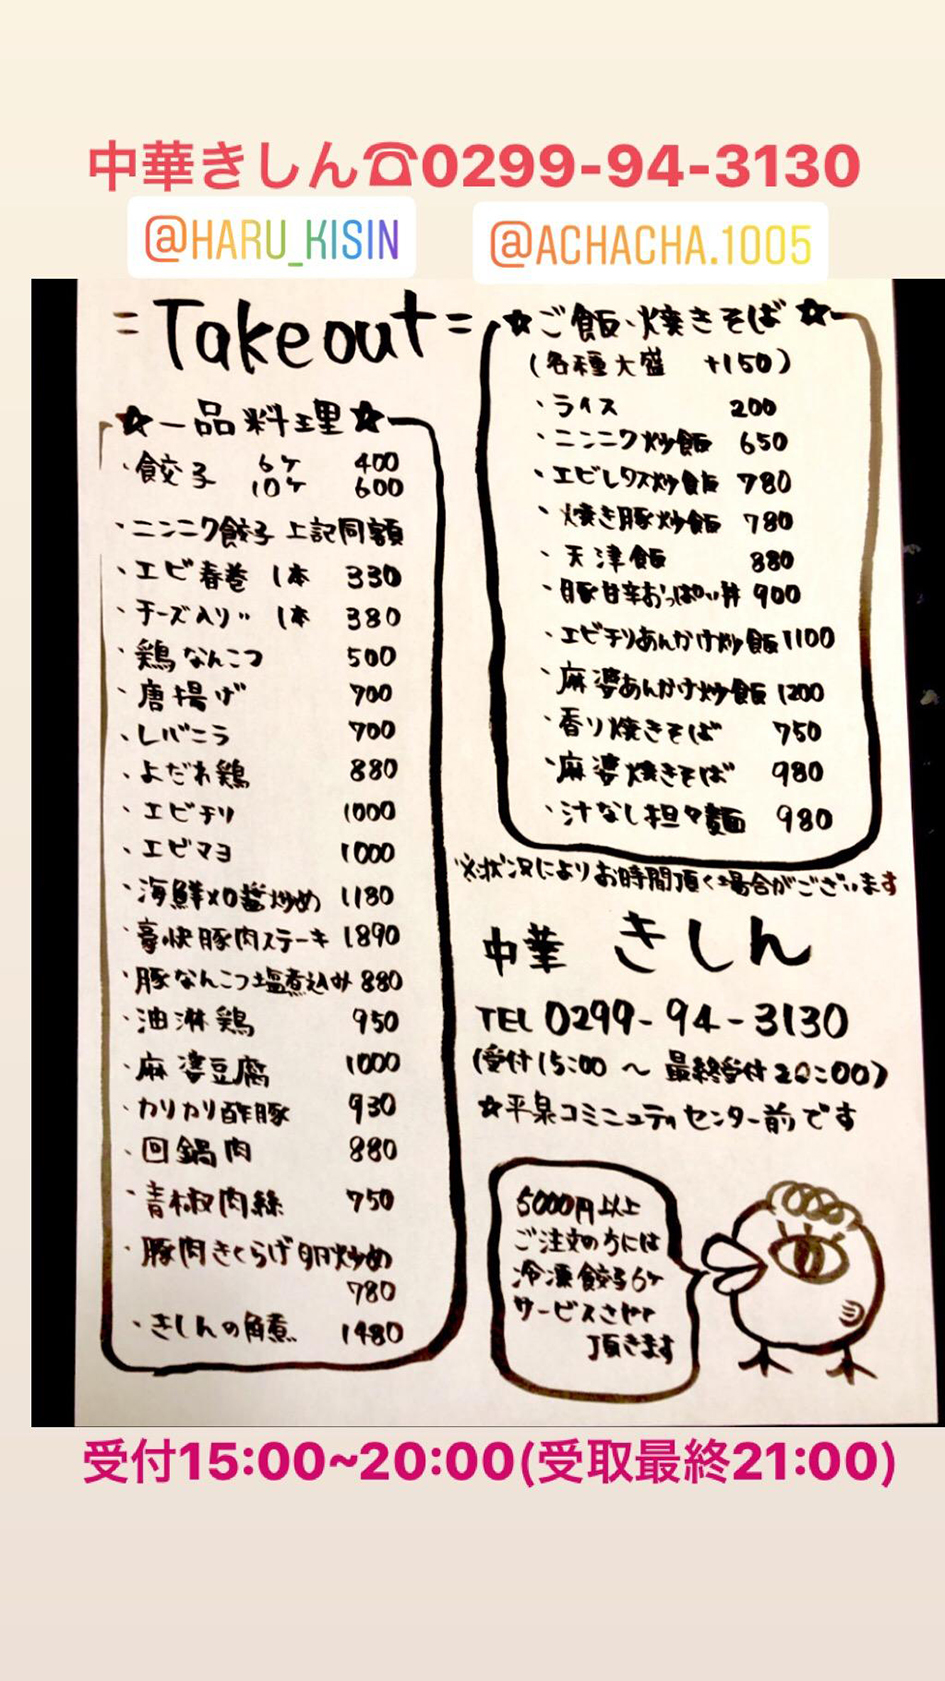 中華きしん☎0299-94-3130
@HARU_KISIN
@ACHACHA.1005
=Takeout=
☆一品料理☆
・餃子 6ケ 400
10ケ 600
・ニンニク餃子 上記同額
・エビ春巻 1本 330
・チーズ入り〃 1本 380
・鶏なんこつ 500
・唐揚げ 700
・レバニラ 700
・よだれ鶏 880
・エビチリ 1000
・エビマヨ 1000
・海鮮XO醤炒め 1180
・豪快豚肉ステーキ 1890
・豚なんこつ塩煮込み 880
・油淋鶏 950
・麻婆豆腐 1000
・カリカリ酢豚 930
・回鍋肉 880
・青椒肉絲 750
・豚肉きくらげ卵炒め
780
・きしんの角煮 1480
☆ご飯・焼きそば☆
(各種大盛 +150)
・ライス 200
・ニンニク炒飯 650
・エビレタス炒飯 780
・焼き豚炒飯 780
・天津飯 880
・豚甘辛おっぱい丼 900
・エビチリあんかけ炒飯 1100
・麻婆あんかけ炒飯 1200
・香り焼きそば 750
・麻婆焼きそば 980
・汁なし担々麺 980
※状況によりお時間頂く場合がございます
中華 きしん
TEL 0299-94-3130
(受付15:00 〜 最終受付20:00)
☆平泉コミニュティセンター前です
5000円以上
ご注文の方には
冷凍餃子6ケ
サービスさせて
頂きます
受付15:00~20:00(受取最終21:00)